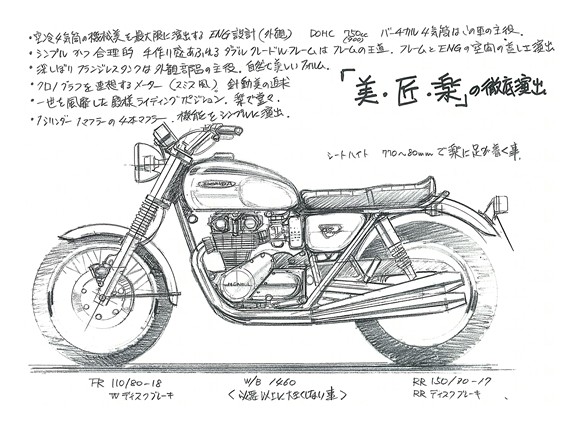 ・空冷4気筒の機械美を最大限に演出するENG設計(外観) DOHC 750cc (900) バーチカル4気筒はこの車の主役.
・シンプルかつ合理的 手作り感あふれるダブルクレードルフレームはフレームの王道. フレームとENGの空間の美しさ演出
・深しぼりフランジレスタンクは外観部品の主役. 自然で美しいフォルム.
・クロノグラフを連想するメーター(スミス風) 針動美の追求
・一世を風靡した殿様ライディングポジション. 楽で堂々.
・1シリンダー1マフラーの4本マフラー. 機能をシンプルに演出.
「美・匠・楽」の徹底演出
シートハイト 770〜80mmで楽に足が着く事.
HONDA
FR 110/80-18
Wディスクブレーキ
W/B 1460
RR 150/70-17
RR ディスクブレーキ